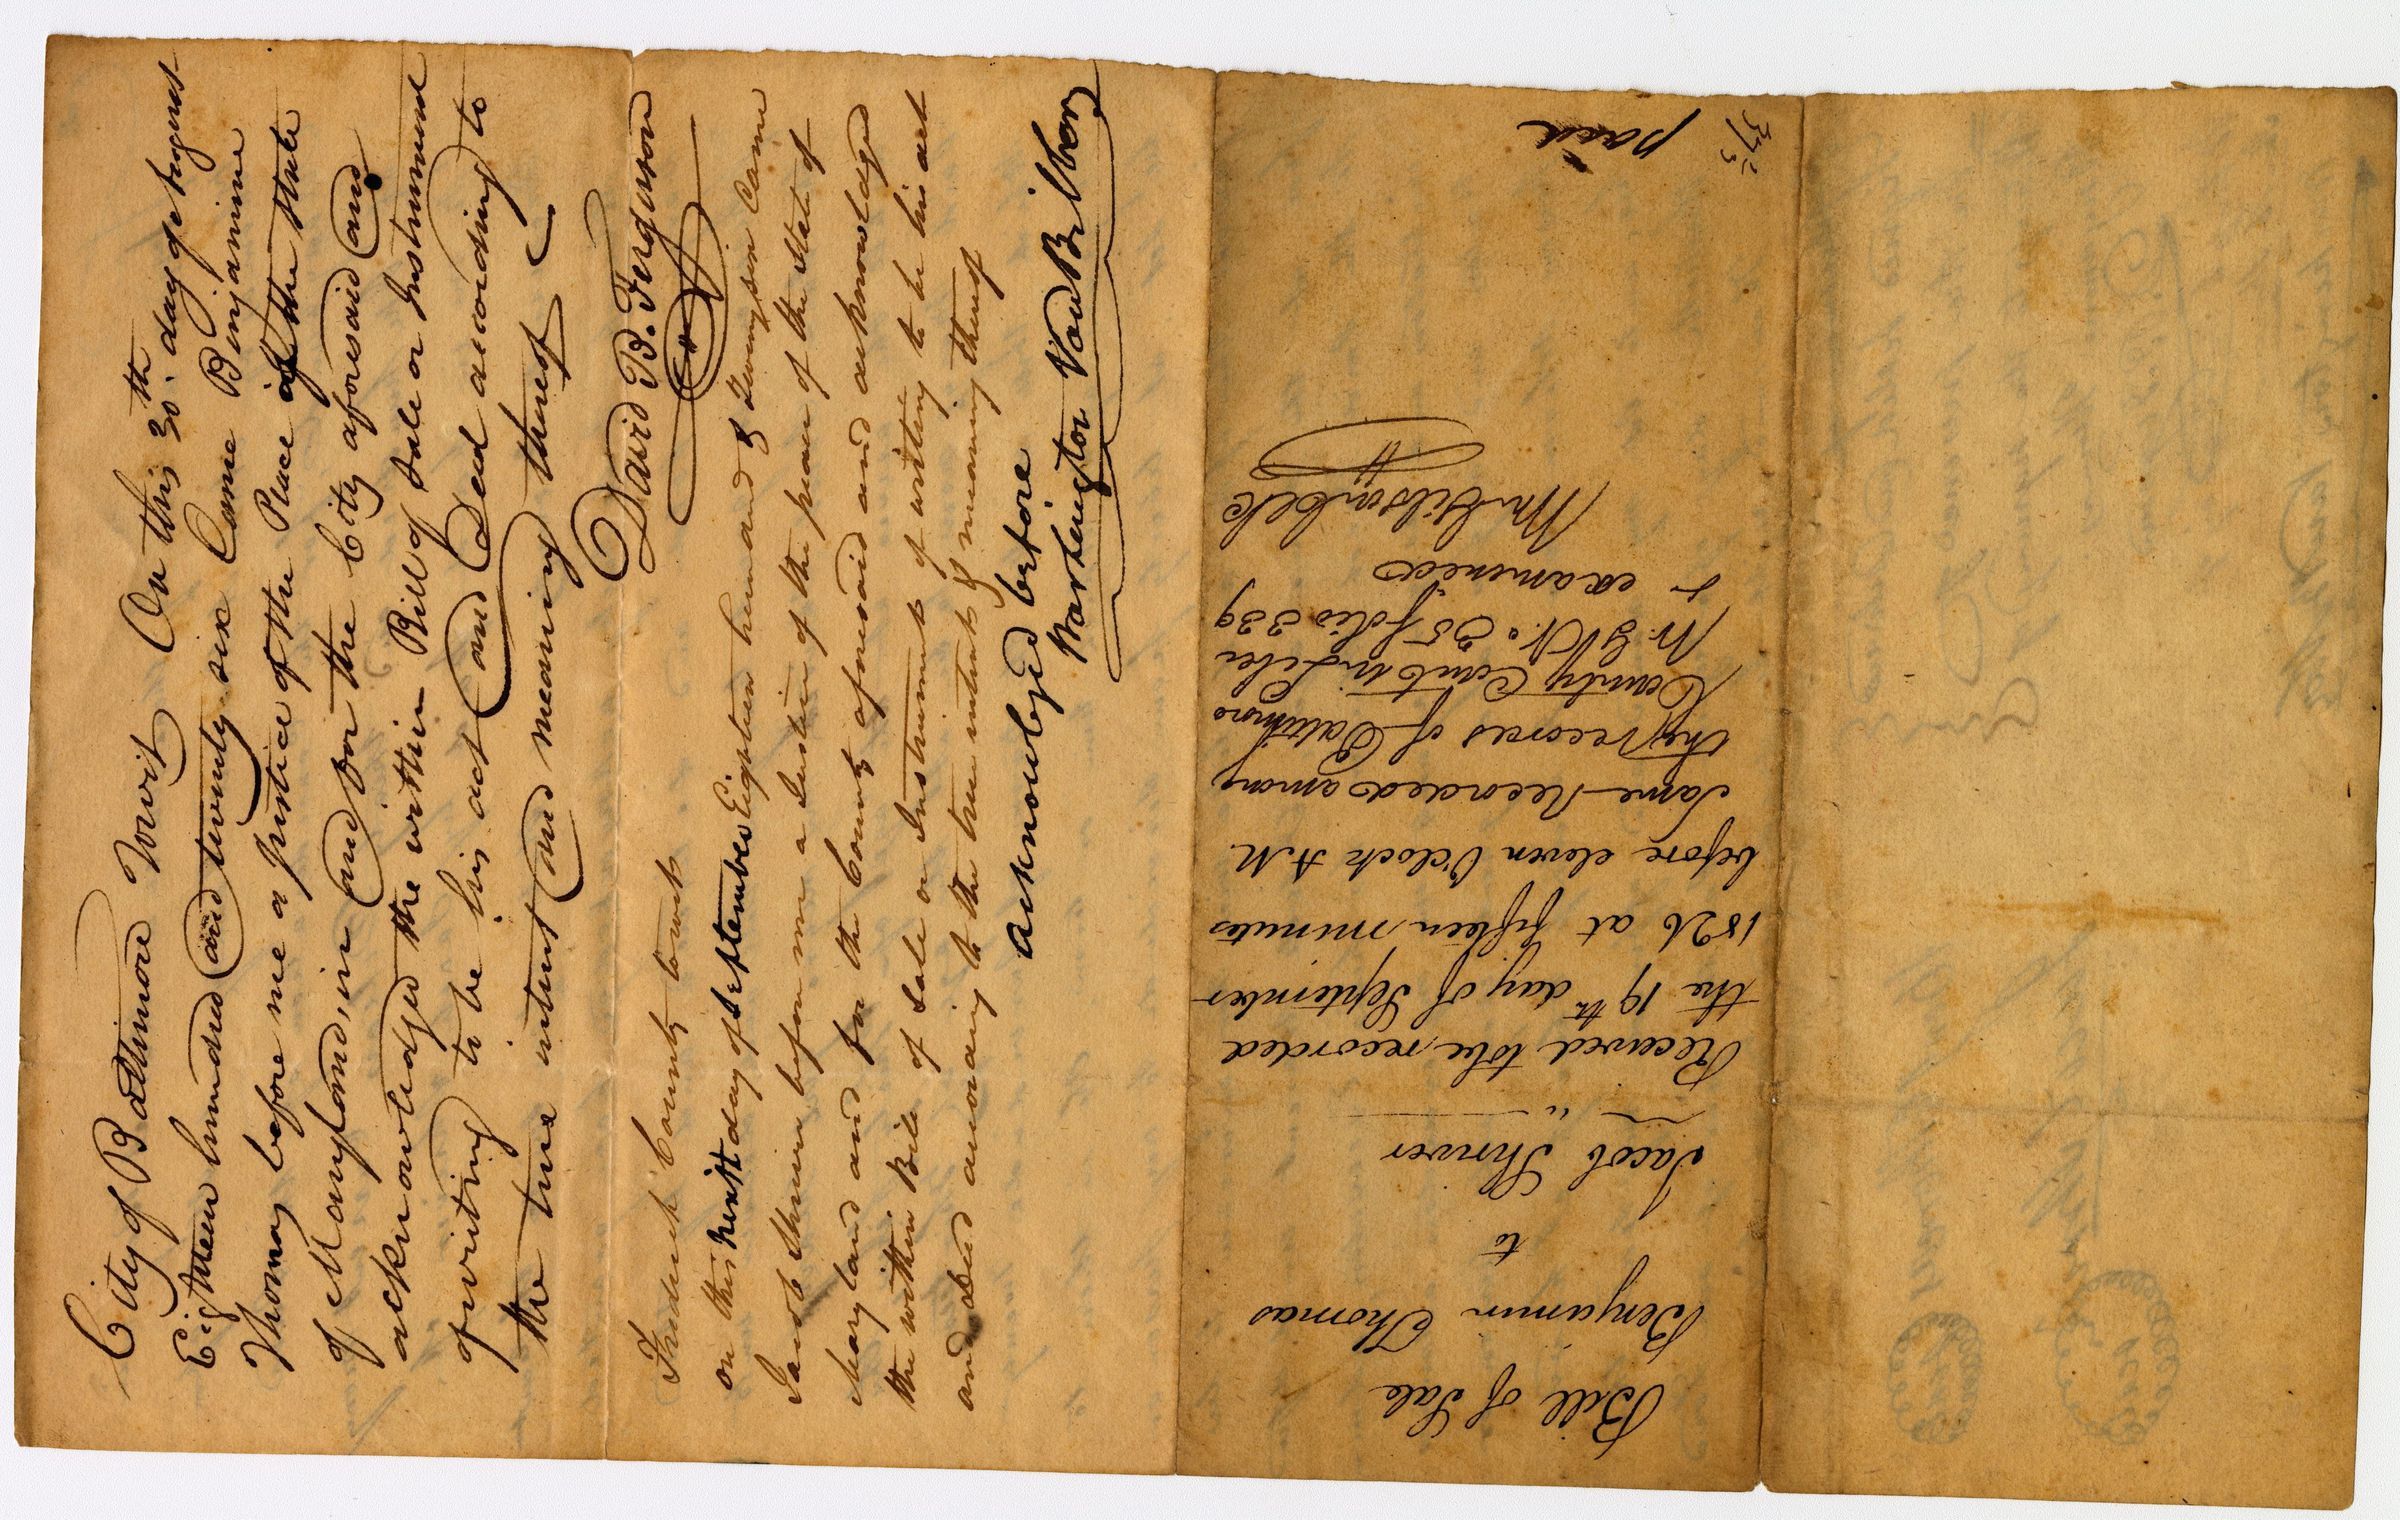 City of Baltimore Towit On this 30th day of August
Eighteen hundred and twenty six Came Benjamine
Thomas before me a Justice of the Peace of the State
of Maryland, in and for the City aforesaid and
acknowledged the within Bill of Sale or Instrument
of writing to be his act and Deed according to
the true intent and meaning thereof
David B. Ferguson
Frederick County towit
on this first day of September Eighteen hundred & Twenty six Came
Jacob Shriver before me a Justice of the peace of the State of
Maryland and for the County aforesaid and acknowledged
the within Bill of Sale or Instrument of writing to be his act
and deed according to the true intent & meaning thereof
acknowledged before
Bill of Sale
Benjamin Thomas
to
Jacob Shriver
"
Received to be recorded
the 19th day of September
1826 at fifteen minutes
before eleven O'clock A.M.
Same Recorded among
the Records of Baltimore
County Court in Liber
W.G. No. 35 folio 339
& examined
Wm Gibson Clk
paid